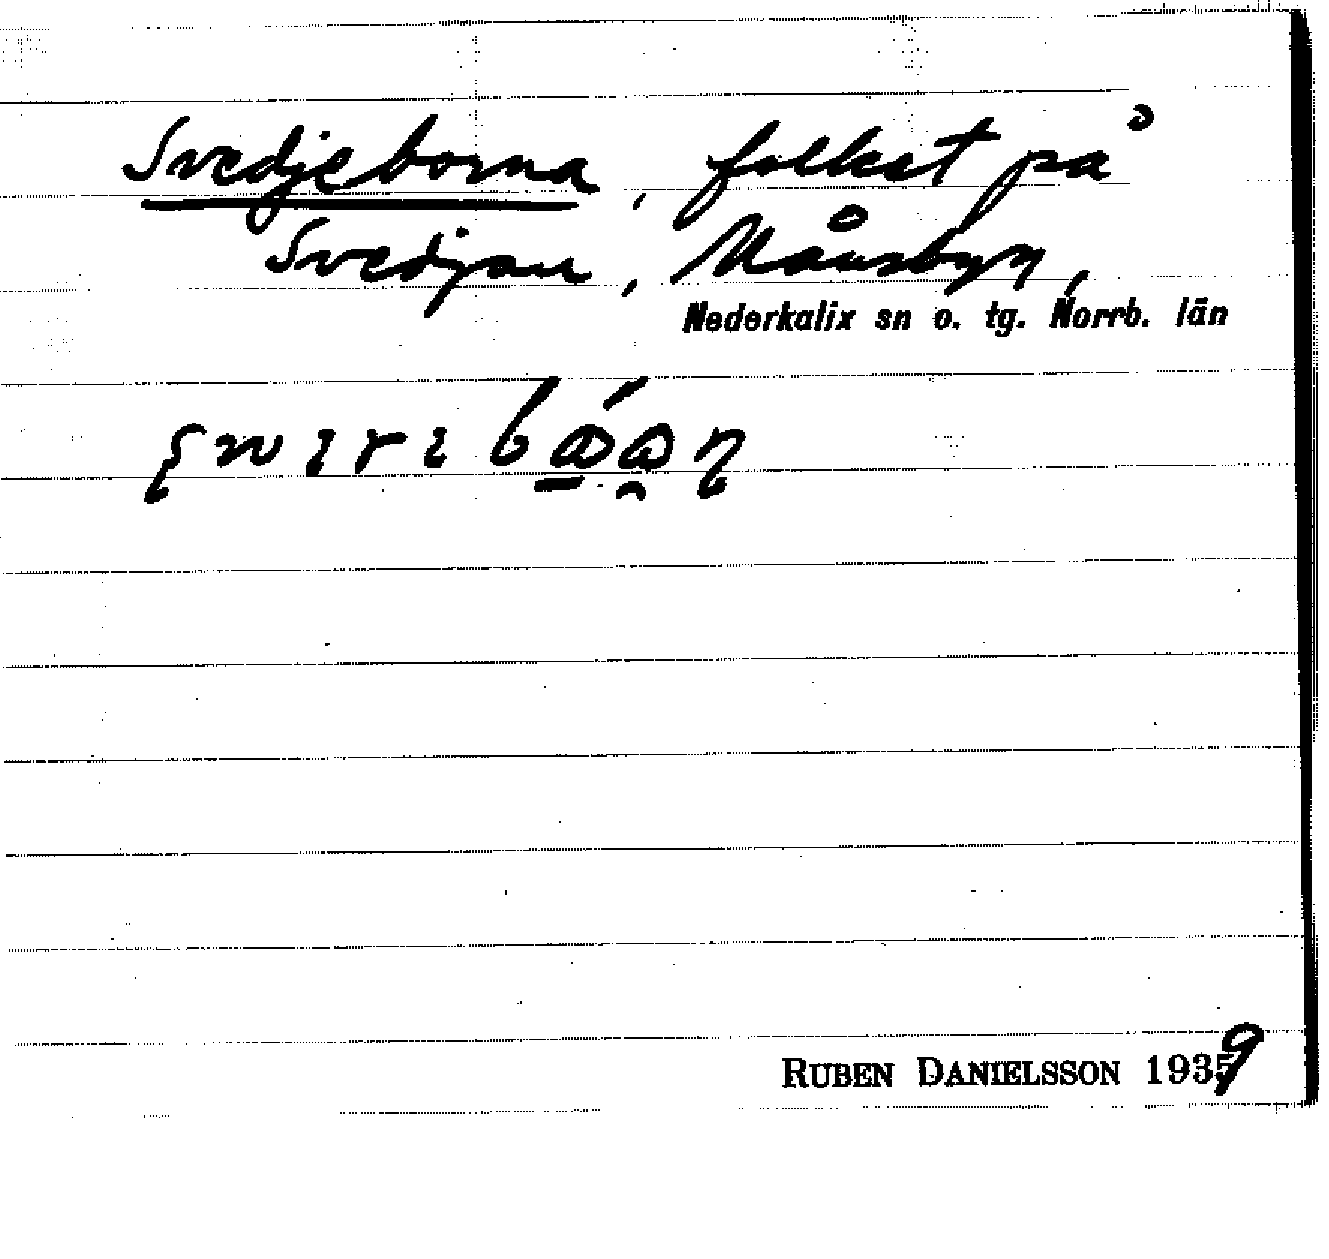 Svedjeborna, folket på
Svedjan, Månsbyn,
Nederkalix sn o. tg. Norrb. län
RUBEN DANIELSSON 1939